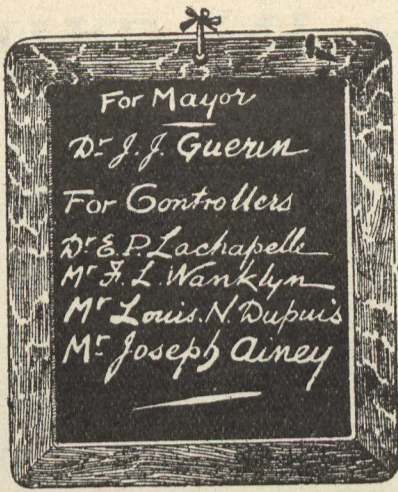 For Mayor
Dr J. J. Guerin
For Controllers
Dr E. P. Lachapelle
Mr F. L. Wanklyn
Mr Louis. N. Dupuis
Mr Joseph Ainey